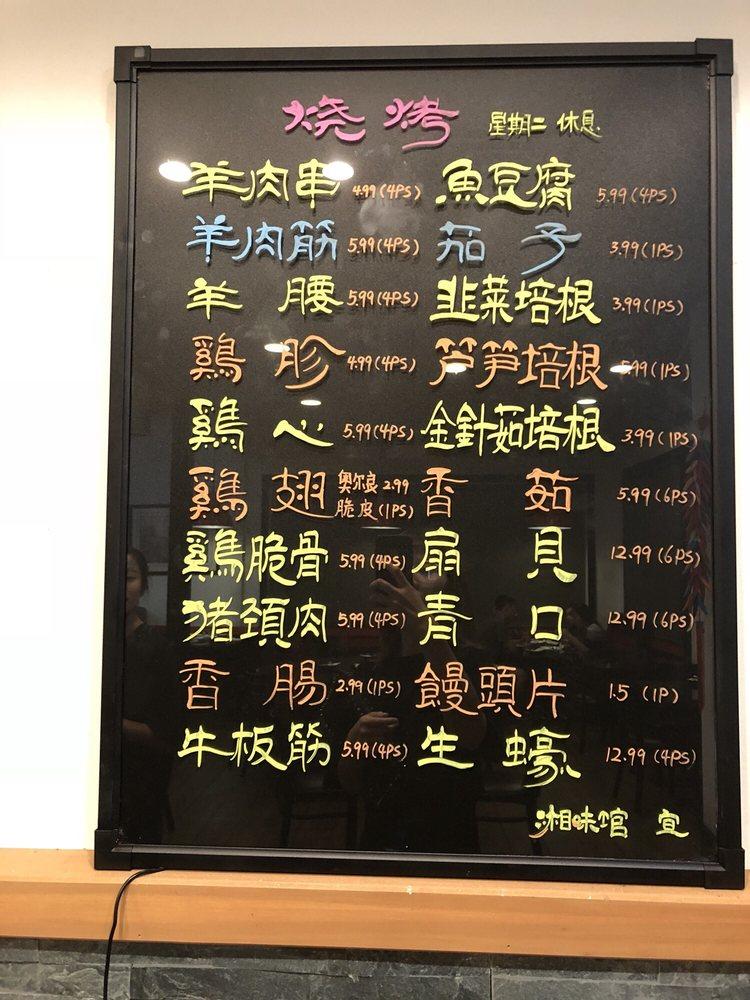 烧烤 星期二 休息
羊肉串 4.99(4PS) 魚豆腐 5.99(4PS)
羊肉筋 5.99(4PS) 茄子 3.99(1PS)
羊腰 5.99(4PS) 韭菜培根 3.99(1PS)
鷄胗 4.99(4PS) 芦笋培根 5.99(1PS)
鷄心 5.99(4PS) 金針茹培根 3.99(1PS)
鷄翅 奥尔良 2.99 香茹 5.99(6PS)
脆皮(1PS)
鷄脆骨 5.99(4PS) 扇貝 12.99(6PS)
猪頚肉 5.99(4PS) 青口 12.99(6PS)
香腸 2.99(1PS) 饅頭片 1.5(1P)
牛板筋 5.99(4PS) 生蠔 12.99(4PS)
湘味馆 宣